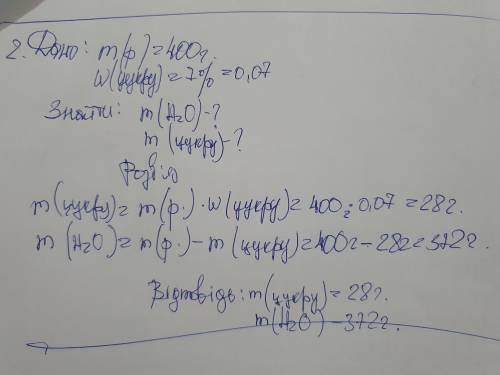 2. Дано: m(р)=400г.
W(цукру)=7%=0,07
Знайти: m(H₂O)-?
m(цукру)-?
m(цукру)= m(р.)·W(цукру)= 400г·0,07=28г.
m(H₂O)=m(р.)-m(цукру)=400г-28г=372г.
Відповідь: m(цукру)=28г.
m(H₂O)-372г.